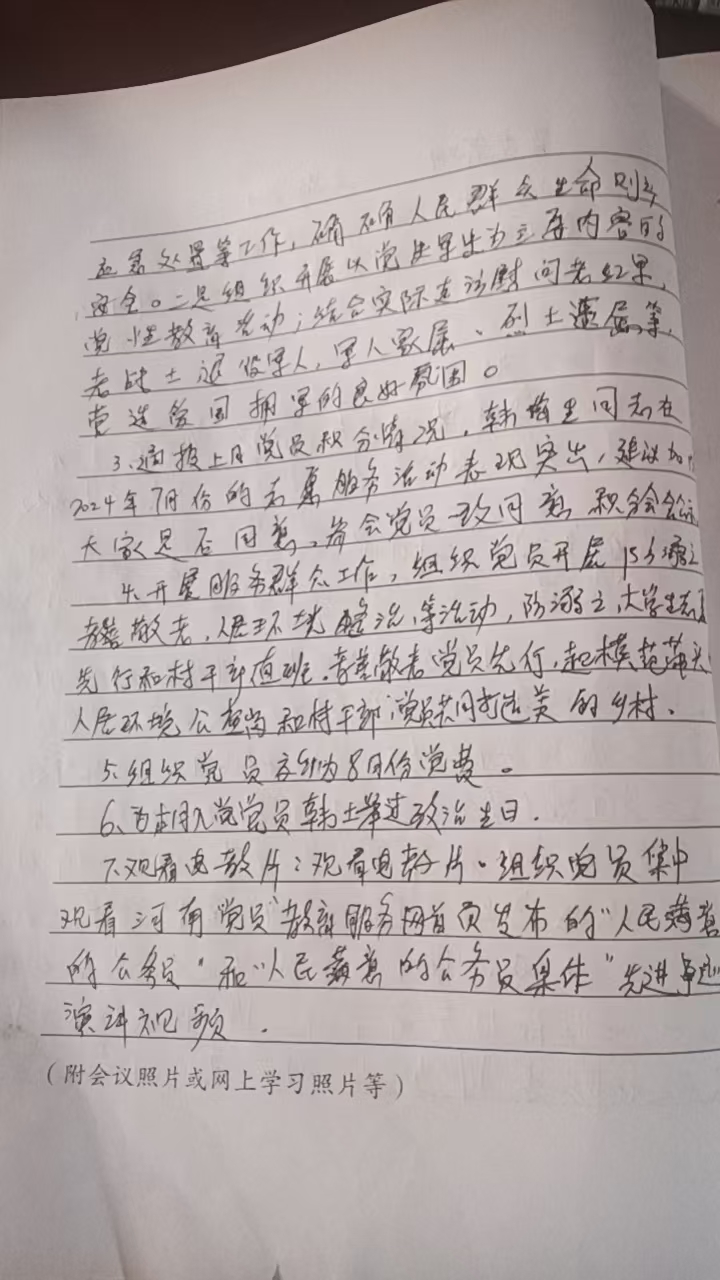 应急处置等工作，确保人民群众生命财产
安全。二是组织开展以党史军史为主要内容的
党性教育活动；结合实际走访慰问老红军，
老战士退役军人，军人家属、烈士遗属等，
营造爱国拥军的良好氛围。
3、通报上月党员积分情况，韩 同志在
2024年7月份的志愿服务活动表现突出，建议加
大家是否同意，与会党员一致同意积分
4、开展服务群众工作，组织党员开展防溺
孝善敬老，人居环境整洁，等活动，防溺 大学生志
先行和村干部值班。孝善敬老党员先行，起模范带头
人居环境公益岗和村干部党员共同打造美的乡村、
5、组织党员交纳8月份党费。
6、为本月入党党员韩 过政治生日．
7、观看电教片：观看电教片。组织党员集中
观看河南党员"教育服务网首页发布的"人民满意
的公务员"和"人民满意的公务员集体"先进事迹
演讲视频．
（附会议照片或网上学习照片等）